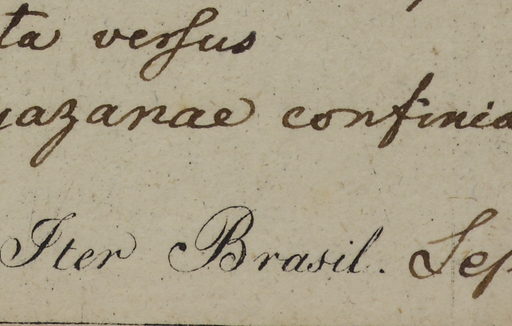 ta versus
yazanae confinia
Iter Brasil. Sep